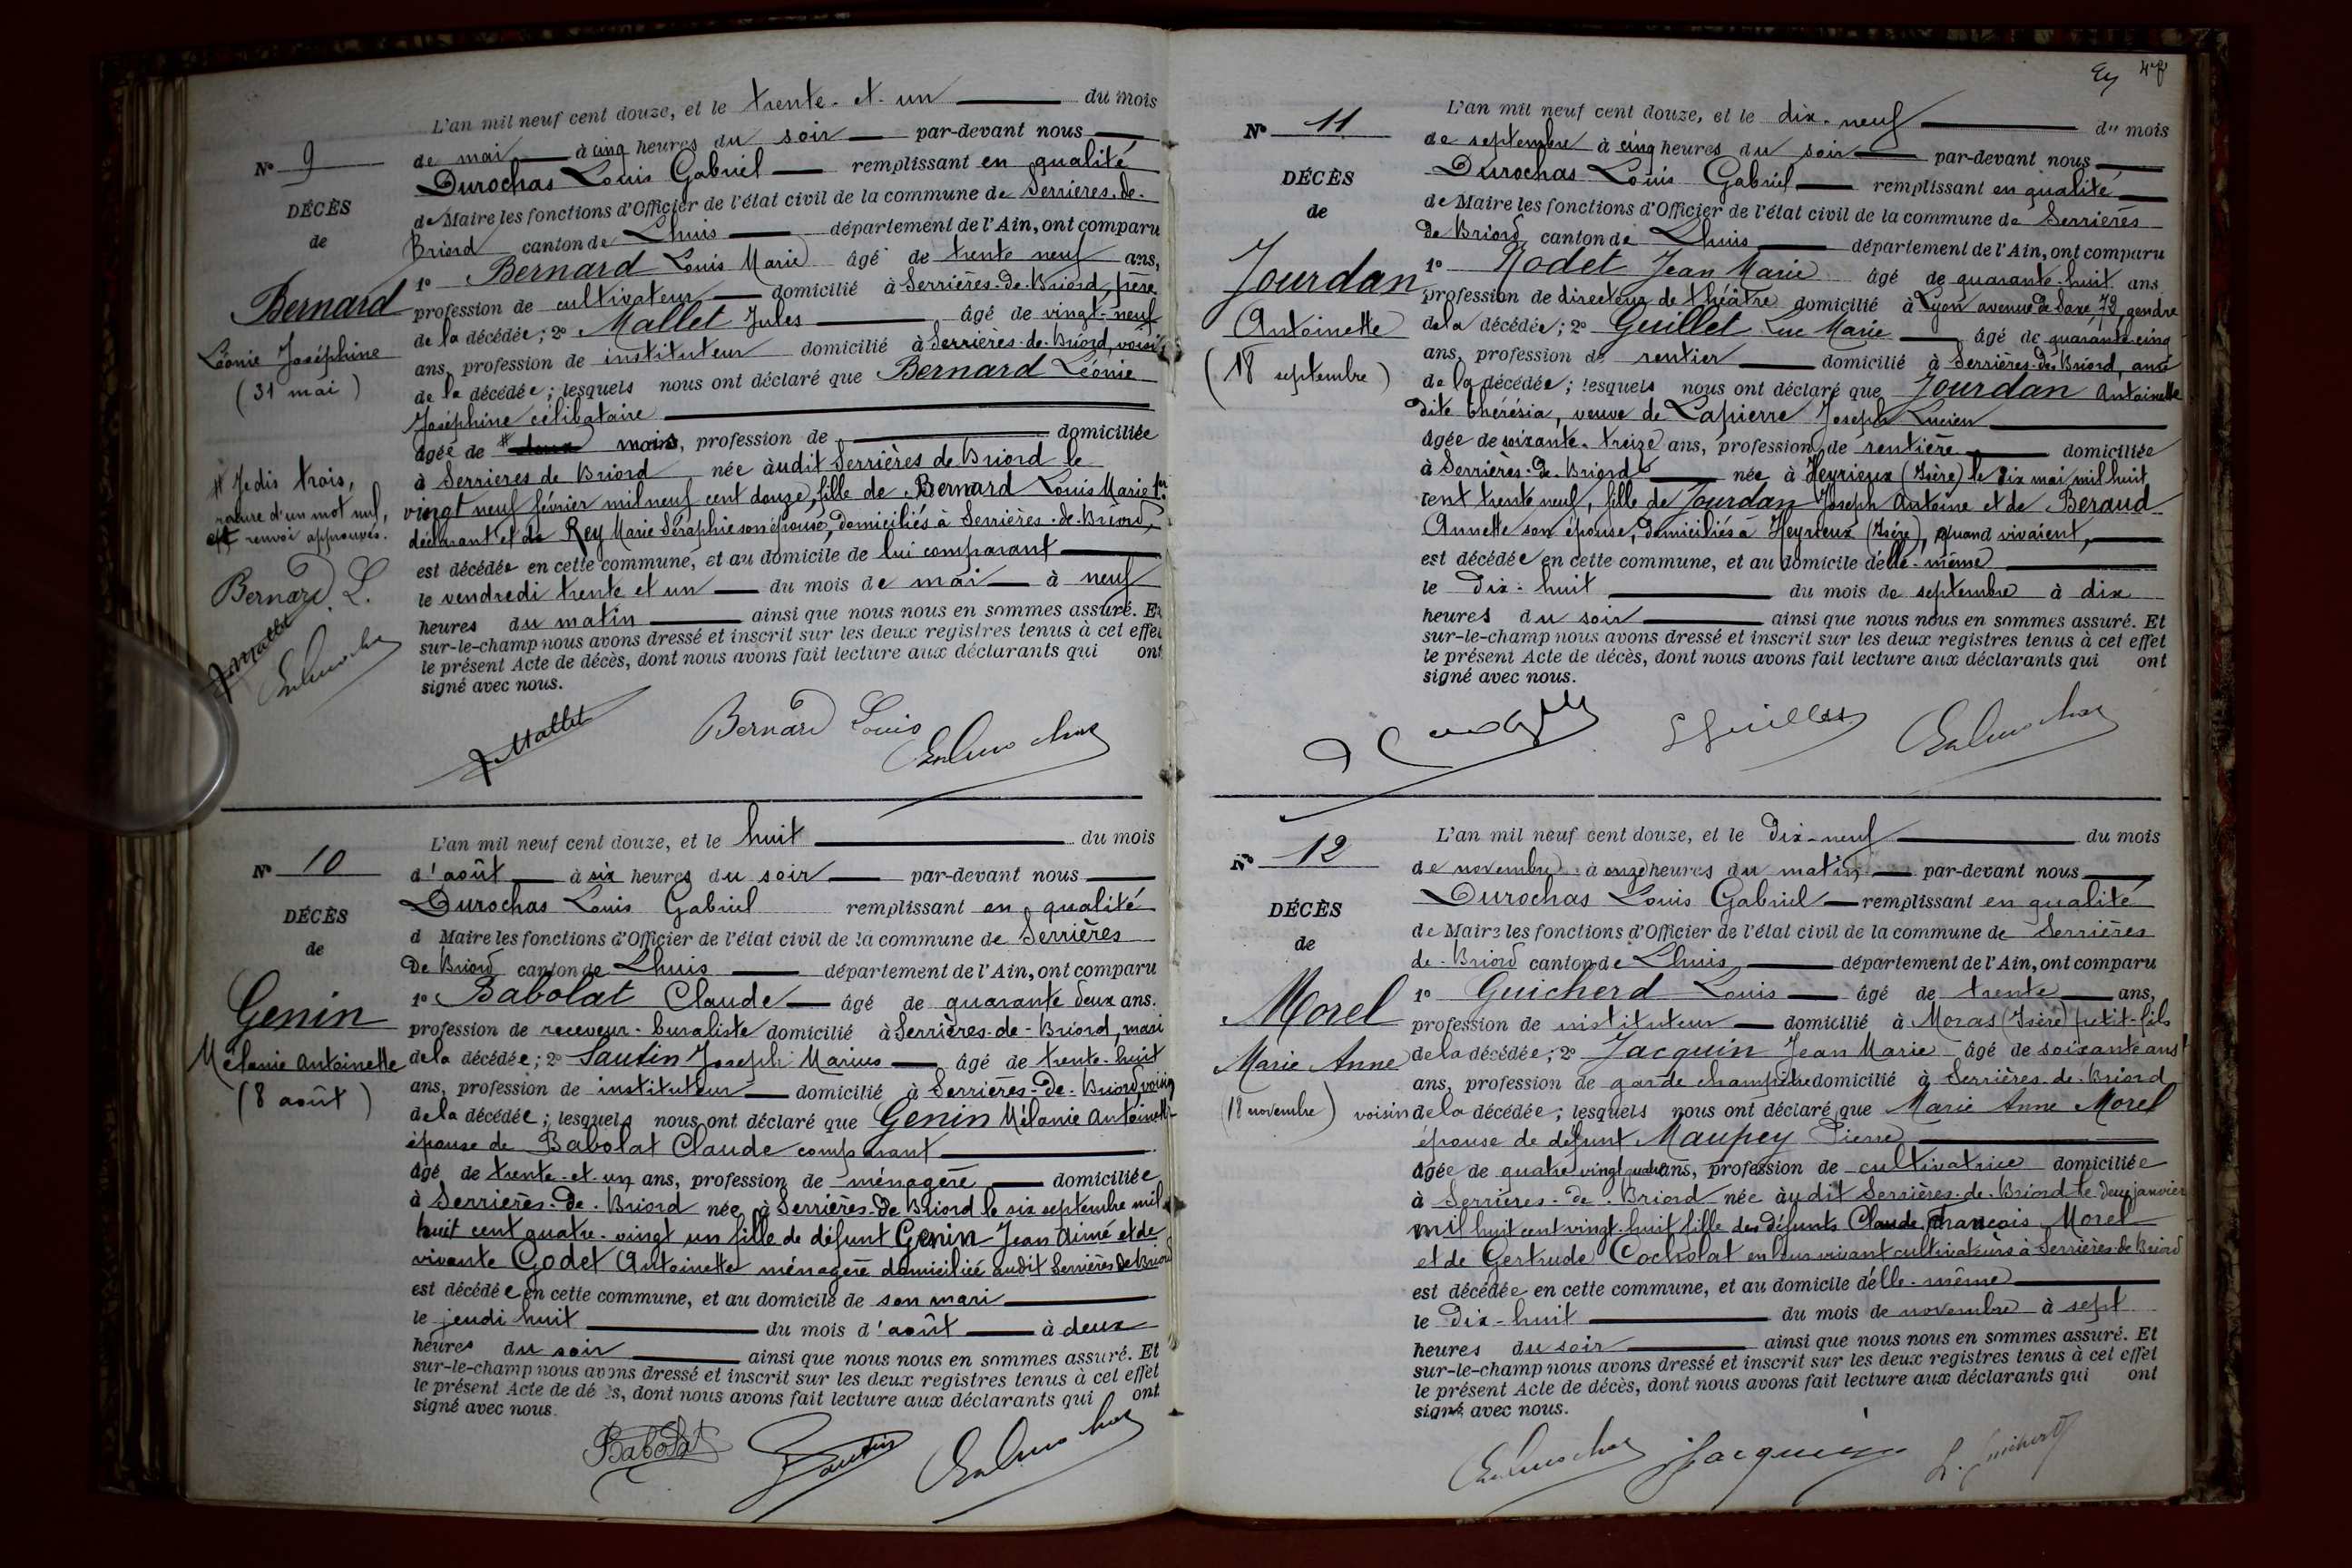 L'an mil neuf cent douze, et le trente-et-un du mois
N° 9
de mai à cinq heures du soir par-devant nous
Durochas Louis Gabriel remplissant en qualité
DÉCÈS
de Maire les fonctions d'Officier de l'état civil de la commune de Serrières-de-
de
Briord canton de Lhuis département de l'Ain, ont comparu
1° Bernard Louis Marie âgé de trente neuf ans,
Bernard
profession de cultivateur domicilié à Serrières-de-Briord, père
de la décédée; 2° Mallet Jules âgé de vingt-neuf
Léonie Joséphine
ans, profession de instituteur domicilié à Serrières-de-Briord, voisin
(31 mai)
de la décédée; lesquels nous ont déclaré que Bernard Léonie
Joséphine célibataire
âgée de # deux mois, profession de domiciliée
à Serrières de Briord née audit Serrières de Briord le
# Je dis trois,
vingt neuf février mil neuf cent douze, fille de Bernard Louis Marie 1er
rature d'un mot nul,
déclarant et de Rey Marie Séraphie son épouse, domiciliés à Serrières-de-Briord,
et renvoi approuvés.
est décédée en cette commune, et au domicile de lui comparant
Bernard. L.
le vendredi trente et un du mois de mai à neuf
heures du matin ainsi que nous nous en sommes assuré. Et
J. Mallet
sur-le-champ nous avons dressé et inscrit sur les deux registres tenus à cet effet
le présent Acte de décès, dont nous avons fait lecture aux déclarants qui ont
signé avec nous.
J. Mallet Bernard Louis
L'an mil neuf cent douze, et le huit du mois
N° 10
d'août à six heures du soir par-devant nous
Durochas Louis Gabriel remplissant en qualité
DÉCÈS
d Maire les fonctions d'Officier de l'état civil de la commune de Serrières
de
De Briord canton de Lhuis département de l'Ain, ont comparu
1° Babolat Claude âgé de quarante deux ans.
Genin
profession de receveur-buraliste domicilié à Serrières-de-Briord, mari
Mélanie Antoinette
de la décédée; 2° Sautin Joseph Marius âgé de trente-huit
ans, profession de instituteur domicilié à Serrières-de-Briord, voisin
(8 août)
de la décédée; lesquels nous ont déclaré que Genin Mélanie Antoinette
épouse de Babolat Claude comparant
âgé de trente-et-un ans, profession de ménagère domiciliée
à Serrières-de-Briord née à Serrières-de Briord le six septembre mil
huit cent quatre-vingt un fille de défunt Genin Jean Aimé et de
vivante Godet Antoinette ménagère domiciliée audit Serrières de Briord
est décédée en cette commune, et au domicile de son mari
le jeudi huit du mois d'août à deux
heures du soir ainsi que nous nous en sommes assuré. Et
sur-le-champ nous avons dressé et inscrit sur les deux registres tenus à cet effet
le présent Acte de décès, dont nous avons fait lecture aux déclarants qui ont
signé avec nous.
Babolat Sautin
L'an mil neuf cent douze, et le dix-neuf du mois
N° 11
de septembre à cinq heures du soir par-devant nous
Durochas Louis Gabriel remplissant en qualité
DÉCÈS
de Maire les fonctions d'Officier de l'état civil de la commune de Serrières
de
de Briord canton de Lhuis département de l'Ain, ont comparu
1° Rodet Jean Marie âgé de quarante-huit ans
Jourdan
profession de directeur de théâtre domicilié à Lyon avenue de Saxe 72, gendre
Antoinette
de la décédée; 2° Guillet Luc Marie âgé de quarante-cinq
ans, profession de rentier domicilié à Serrières-de-Briord, ami
(18 septembre)
de la décédée; lesquels nous ont déclaré que Jourdan Antoinette
dite thérésia, veuve de Lapierre Joseph Lucien
âgée de soixante-treize ans, profession de rentière domiciliée
à Serrières-de-Briord née à Heyrieux (Isère) le dix mai mil huit
cent trente neuf, fille de Jourdan Joseph Antoine et de Beraud
Annette son épouse, domiciliés à Heyrieux (Isère), quand vivaient,
est décédée en cette commune, et au domicile d'elle-même
le dix-huit du mois de septembre à dix
heures du soir ainsi que nous nous en sommes assuré. Et
sur-le-champ nous avons dressé et inscrit sur les deux registres tenus à cet effet
le présent Acte de décès, dont nous avons fait lecture aux déclarants qui ont
signé avec nous.
L Guillet
L'an mil neuf cent douze, et le Dix-neuf du mois
N° 12
de novembre à onze heures du matin par-devant nous
Durochas Louis Gabriel remplissant en qualité
DÉCÈS
de Maire les fonctions d'Officier de l'état civil de la commune de Serrières
de
de-Briord canton de Lhuis département de l'Ain, ont comparu
1° Guicherd Louis âgé de trente ans,
Morel
profession de instituteur domicilié à Moras (Isère) petit-fils
Marie Anne
de la décédée; 2° Jacquin Jean Marie âgé de soixante ans
ans, profession de garde champêtre domicilié à Serrières-de-Briord
(18 novembre)
voisin de la décédée; lesquels nous ont déclaré que Marie Anne Morel
épouse de défunt Maupey Pierre
âgée de quatre vingt quatre ans, profession de cultivatrice domiciliée
à Serrières-de-Briord née audit Serrières-de-Briord le deux janvier
mil huit cent vingt-huit fille des défunts Claude François Morel
et de Gertrude Cocholat en leur vivant cultivateurs à Serrières de Briord
est décédée en cette commune, et au domicile d'elle-même
le Dix-huit du mois de novembre à sept
heures du soir ainsi que nous nous en sommes assuré. Et
sur-le-champ nous avons dressé et inscrit sur les deux registres tenus à cet effet
le présent Acte de décès, dont nous avons fait lecture aux déclarants qui ont
signé avec nous.
Jacquin L. Guicherd